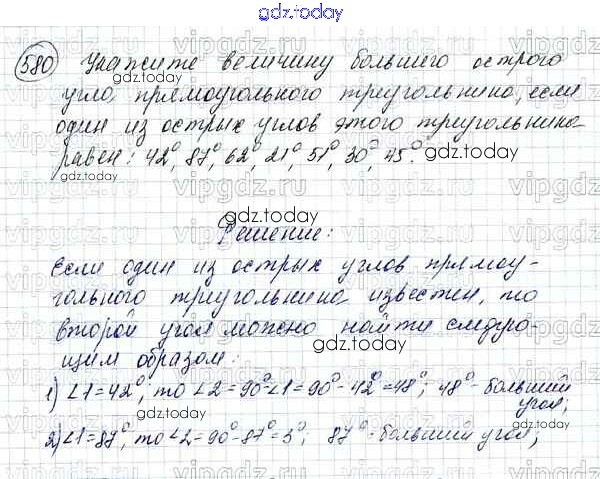 gdz.today
580 Укажите величину большего острого
угла прямоугольного треугольника, если
один из острых углов этого треугольника
равен: 42°, 87°, 62°, 21°, 51°, 30°, 45°.
Решение:
Если один из острых углов прямоу-
гольного треугольника известен, то
второй угол можно найти следую-
щим образом:
1) ∠1=42°, то ∠2=90°-∠1=90°-42°=48°; 48°- больший
угол;
2) ∠1=87°, то ∠2=90°-87°=3°; 87°- больший угол;